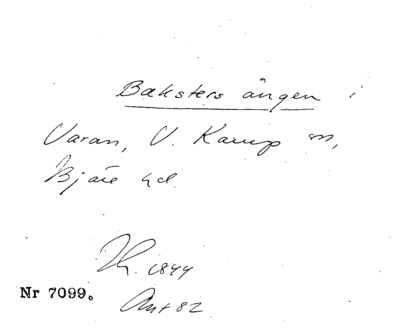 Baksters ängen i
Varan, V. Karup sn,
Bjäre hd.
Th. 1844
Nr 7099.
Ant 82